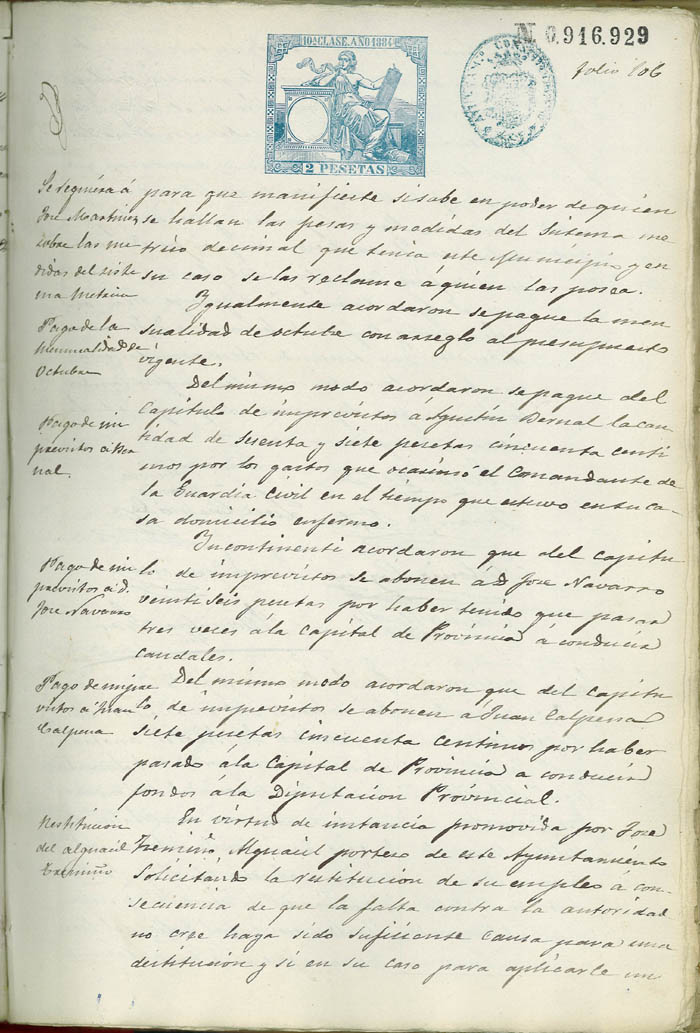 10ª CLASE. AÑO 1884
2 PESETAS
N 0.916.929
folio 106
Se requirirá á
José Martinez
sobre las me
didas del siste
ma metrico
para que manifieste si sabe en poder de quien
se hallan las pesas y medidas del Sistema me
trico decimal que tenia este Municipio y en
su caso se las reclame á quien las posea.
Pago de la
mensualidad de
Octubre
Igualmente acordaron se pague la men
sualidad de octubre con arreglo al presupuesto
vigente.
Pago de im
previstos á Ber
nal.
Del mismo modo acordaron se pague del
Capitulo de imprevistos á Agustin Bernal la can
tidad de sesenta y siete pesetas cincuenta centi
mos por los gastos que ocasionó el Comandante de
la Guardia Civil en el tiempo que estuvo en su ca
sa domicilio enfermo.
Pago de im
previstos á D.
Jose Navarro
Incontinenti acordaron que del capitu
lo de imprevistos se abonen á D Jose Navarro
veintiseis pesetas por haber tenido que pasar
tres veces á la Capital de Provincia á conducir
caudales.
Pago de impre
vistos á Juan
Calpena
Del mismo modo acordaron que del capitu
lo de imprevistos se abonen a Juan Calpena
siete pesetas cincuenta centimos por haber
pasado á la Capital de Provincia a conducir
fondos á la Diputacion Provincial.
Restitución
del alguacil
Tremiño
En virtud de instancia promovida por Jose
Tremiño Alguacil portero de este Ayuntamiento
Solicitando la restitucion de su empleo á con
secuencia de que la falta contra la autoridad
no cree haya sido suficiente causa para una
destitución y si en su caso para aplicarle un